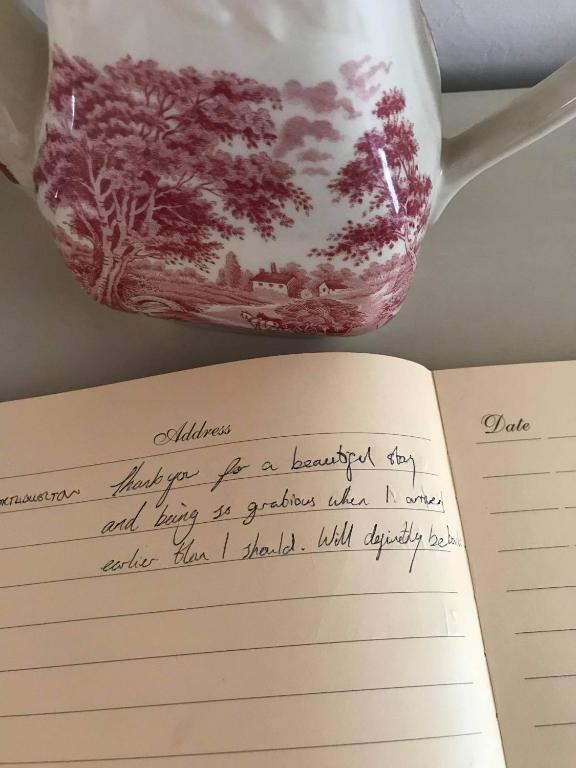 Address
Date
Thank you for a beautiful stay
and being so gratious when I arrived
earlier than I should. Will definetly be